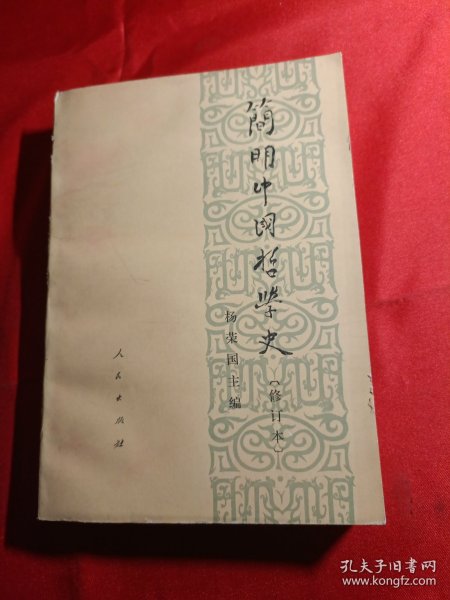 簡明中國哲學史
(修订本)
杨荣国主编
人民出版社
孔夫子旧书网
www.kongfz.com